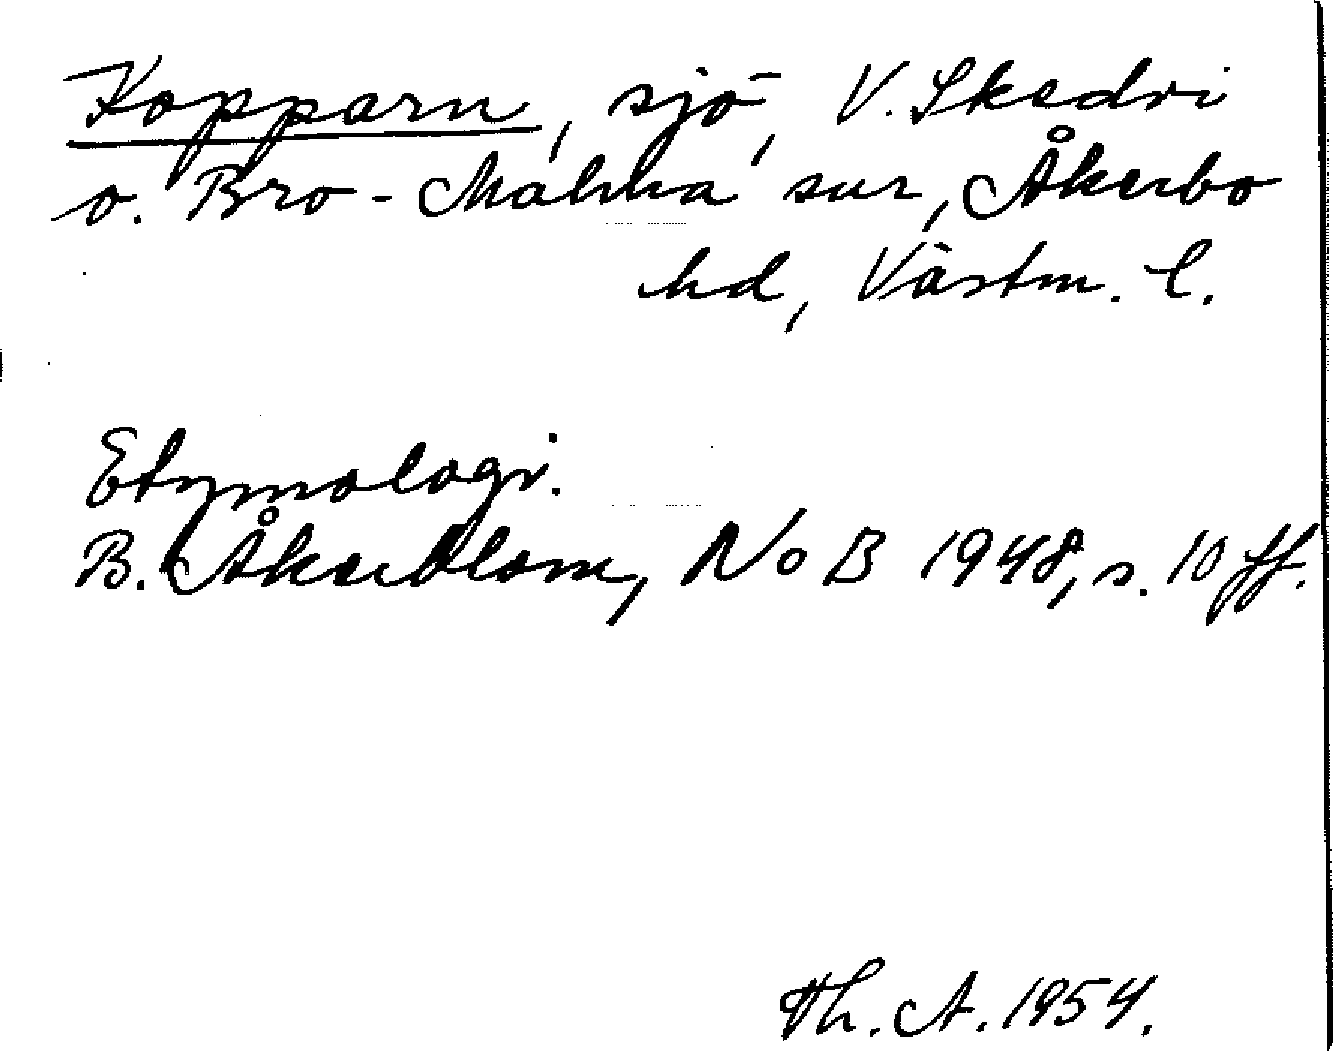 Kopparn, sjö, V. Skedvi
o. Bro-Malma snr, Åkerbo
hd, Västm. l.
Etymologi.
B. Åkerblom, NoB 1948, s. 10 ff.
Th. A. 1954.